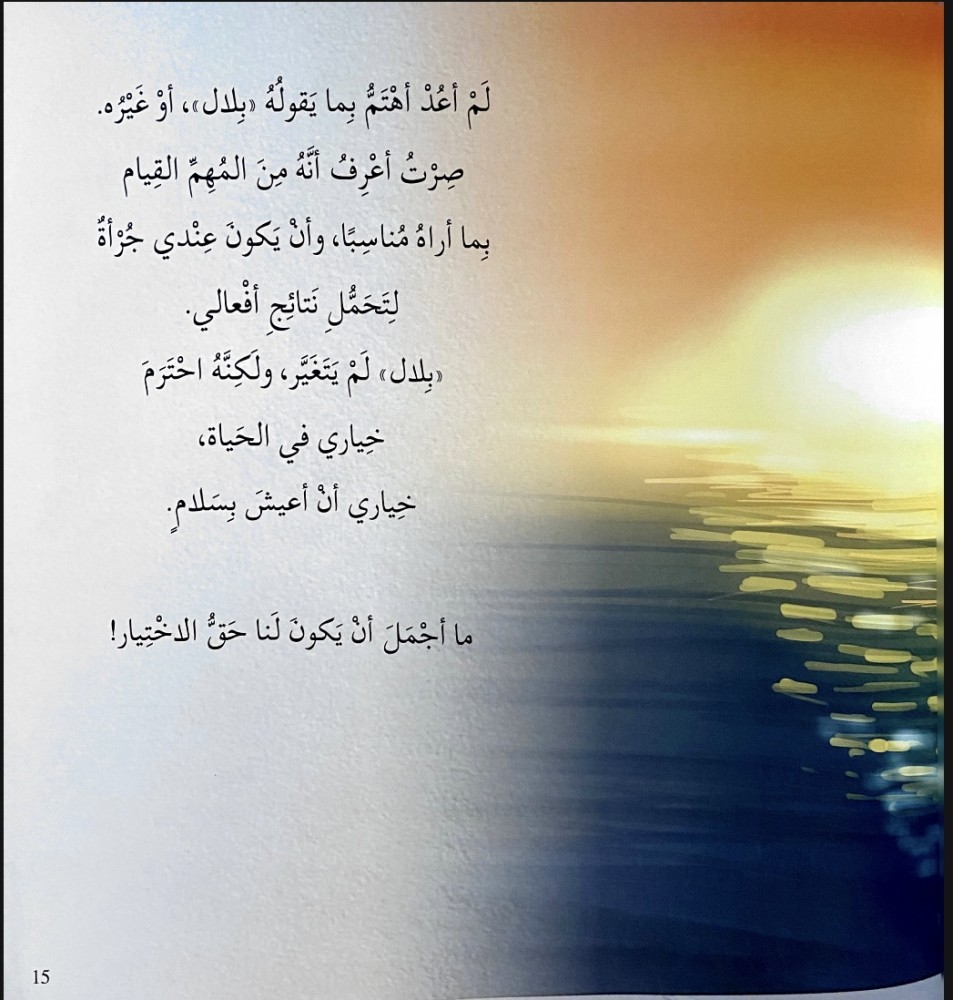 لَمْ أعُدْ أهْتَمُّ بِما يَقولُهُ «بِلال»، أوْ غَيْرُه.
صِرْتُ أعْرِفُ أنَّهُ مِنَ المُهِمِّ القِيام
بِما أراهُ مُناسِبًا، وأنْ يَكونَ عِنْدي جُرْأةٌ
لِتَحَمُّلِ نَتائِجِ أفْعالي.
«بِلال» لَمْ يَتَغَيَّر، ولَكِنَّهُ احْتَرَمَ
خِياري في الحَياة،
خِياري أنْ أعيشَ بِسَلامٍ.
ما أجْمَلَ أنْ يَكونَ لَنا حَقُّ الاخْتِيار!
15